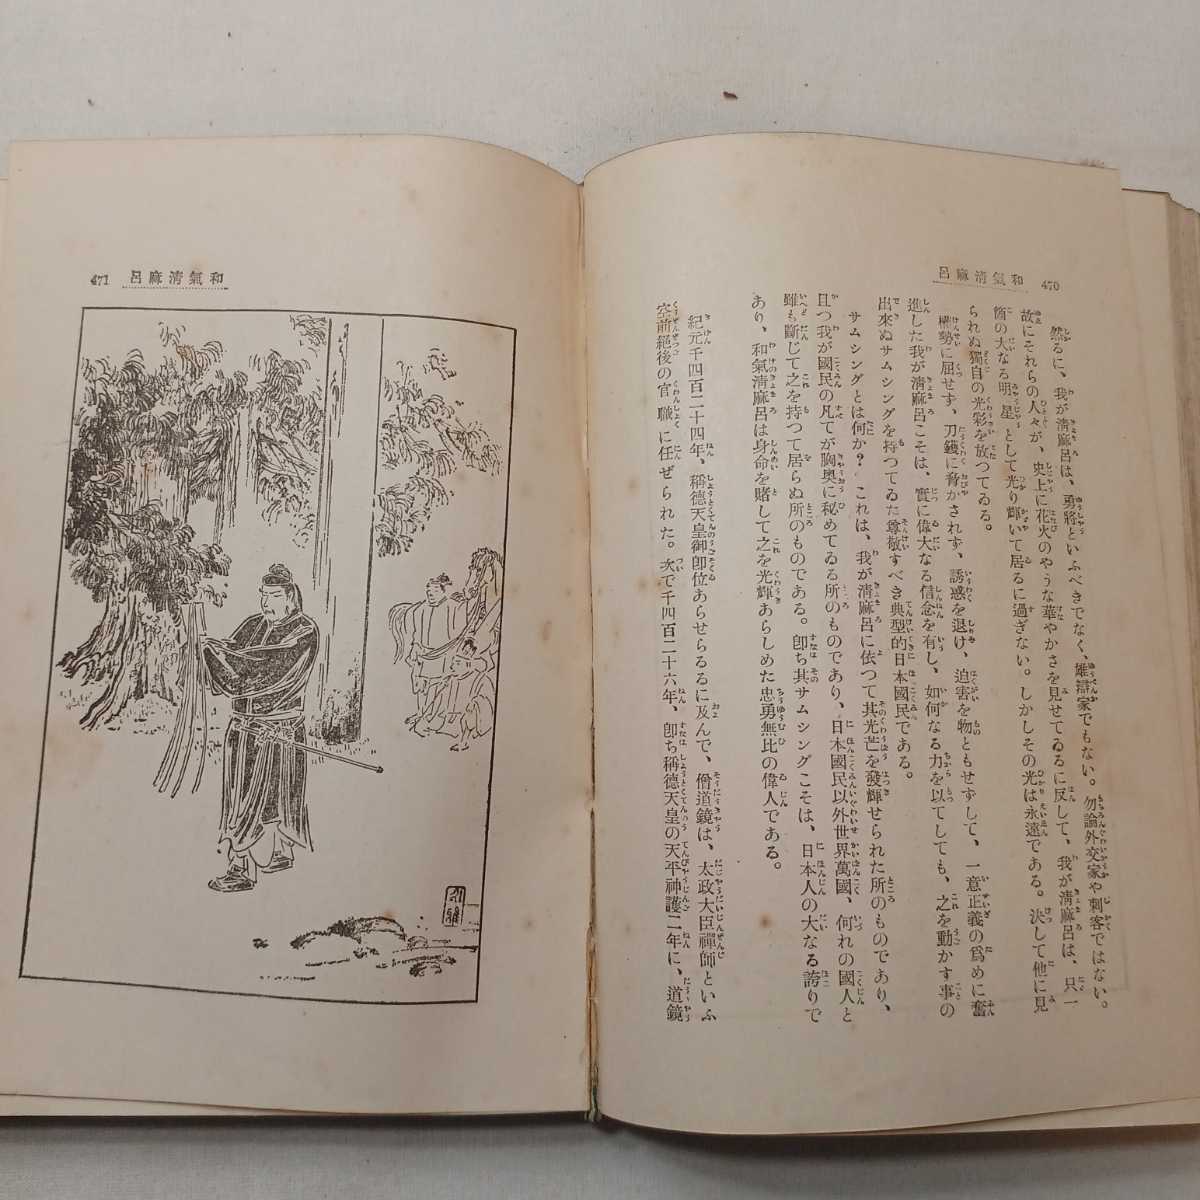 470 和氣淸麻呂
然るに、我が淸麻呂は、勇將といふべきでなく、雄辯家でもない。勿論外交家や刺客ではない。
故にそれらの人々が、史上に花火のやうな華やかさを見せてゐるに反して、我が淸麻呂は、只一
箇の大なる明星として光り輝いて居るに過ぎない。しかしその光は永遠である。決して他に見
られぬ獨自の光彩を放つてゐる。
權勢に屈せず、刀鑊に脅かされず、誘惑を退け、迫害を物ともせずして、一意正義の爲めに奮
進した我が淸麻呂こそは、實に偉大なる信念を有し、如何なる力を以てしても、之を動かす事の
出來ぬサムシングを持つてゐた尊敬すべき典型的日本國民である。
サムシングとは何か？　これは、我が淸麻呂に依つて其光芒を發輝せられた所のものであり、
且つ我が國民の凡てが胸奥に秘めてゐる所のものであり、日本國民以外世界萬國、何れの國人と
雖も斷じて之を持つて居らぬ所のものである。卽ち其サムシングこそは、日本人の大なる誇りで
あり、和氣淸麻呂は身命を賭して之を光輝あらしめた忠勇無比の偉人である。
紀元千四百二十四年、稱德天皇御卽位あらせらるるに及んで、僧道鏡は、太政大臣禪師といふ
空前絕後の官職に任ぜられた。次で千四百二十六年、卽ち稱德天皇の天平神護二年に、道鏡
和氣淸麻呂 471